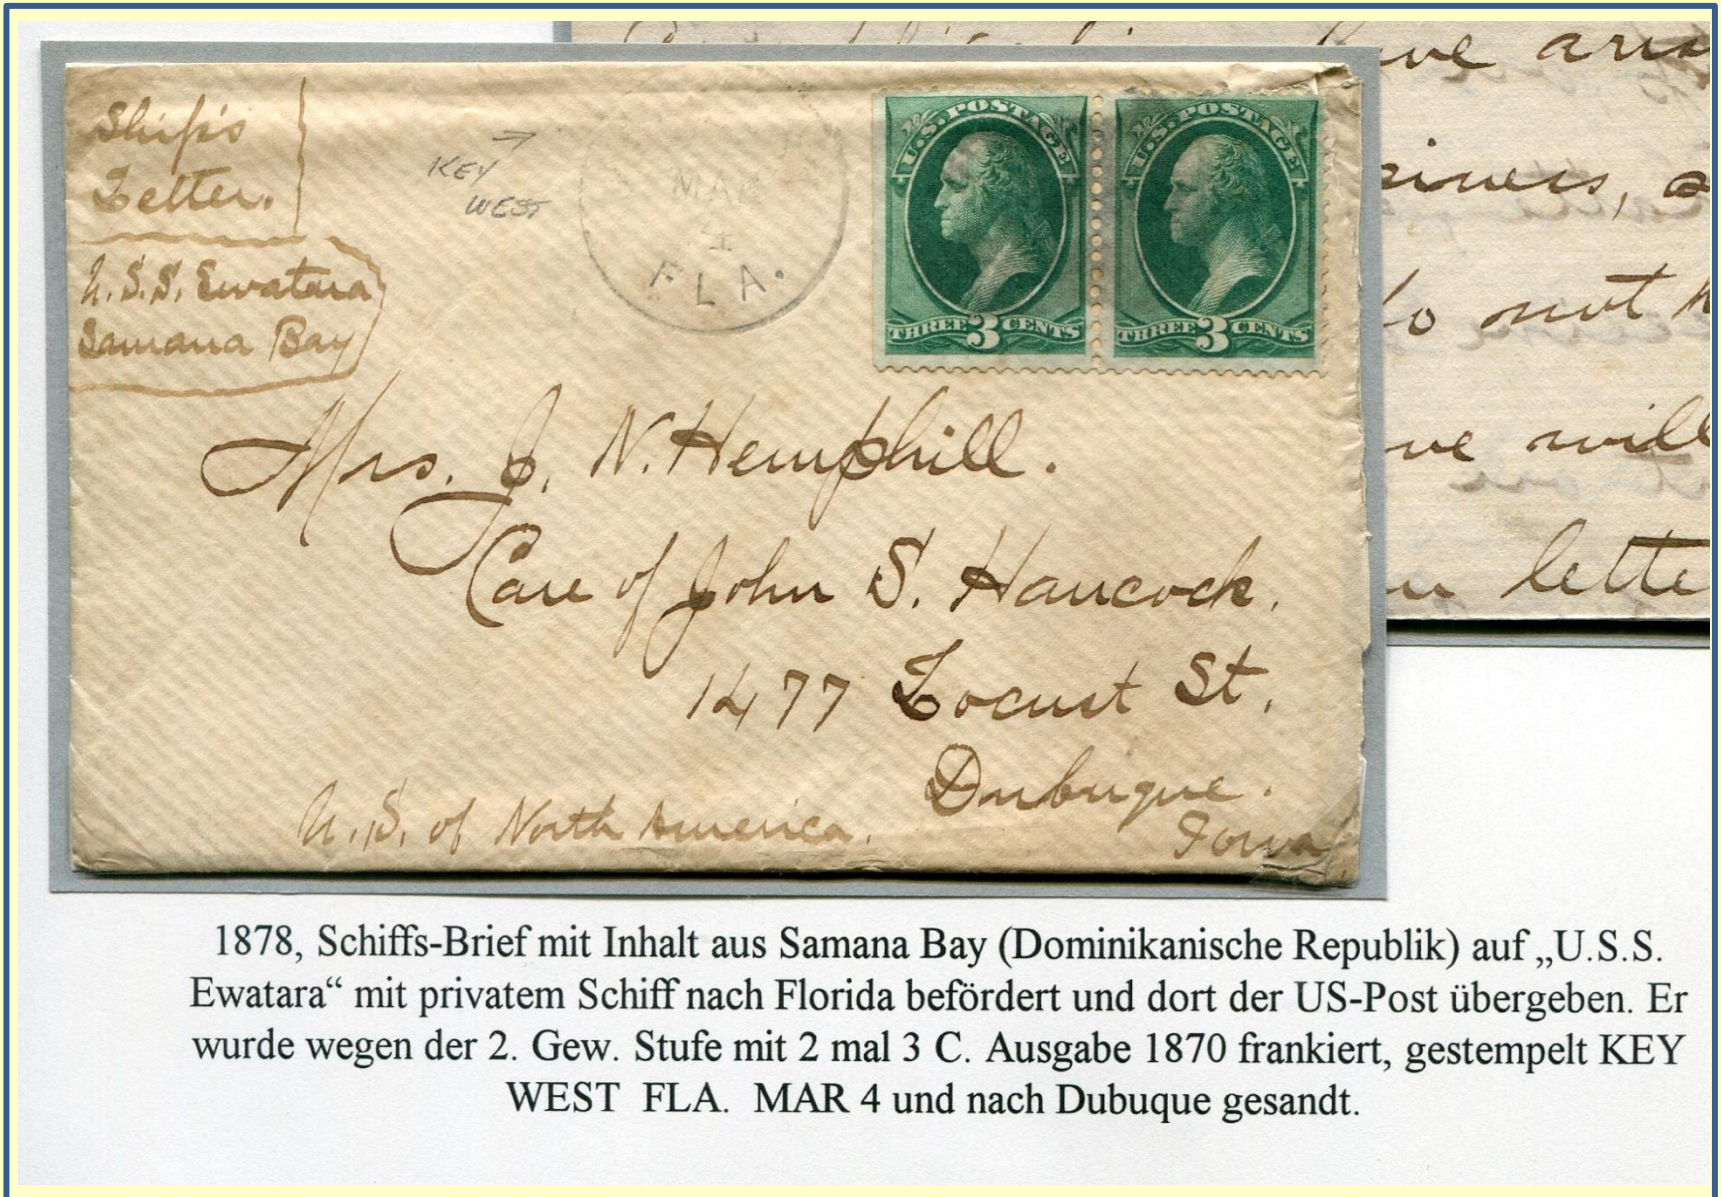 Ship's
Letter.
U.S.S. Ewatara
Samana Bay
KEY
WEST
MAR
4
FLA.
U.S. POSTAGE
THREE 3 CENTS
U.S. POSTAGE
THREE 3 CENTS
Mrs. J. N. Hemphill.
Care of John S. Hancock.
1477 Locust St.
Dubuque.
Iowa
U.S. of North America.
have
siness,
do not
we will
letter
1878, Schiffs-Brief mit Inhalt aus Samana Bay (Dominikanische Republik) auf „U.S.S.
Ewatara“ mit privatem Schiff nach Florida befördert und dort der US-Post übergeben. Er
wurde wegen der 2. Gew. Stufe mit 2 mal 3 C. Ausgabe 1870 frankiert, gestempelt KEY
WEST FLA. MAR 4 und nach Dubuque gesandt.